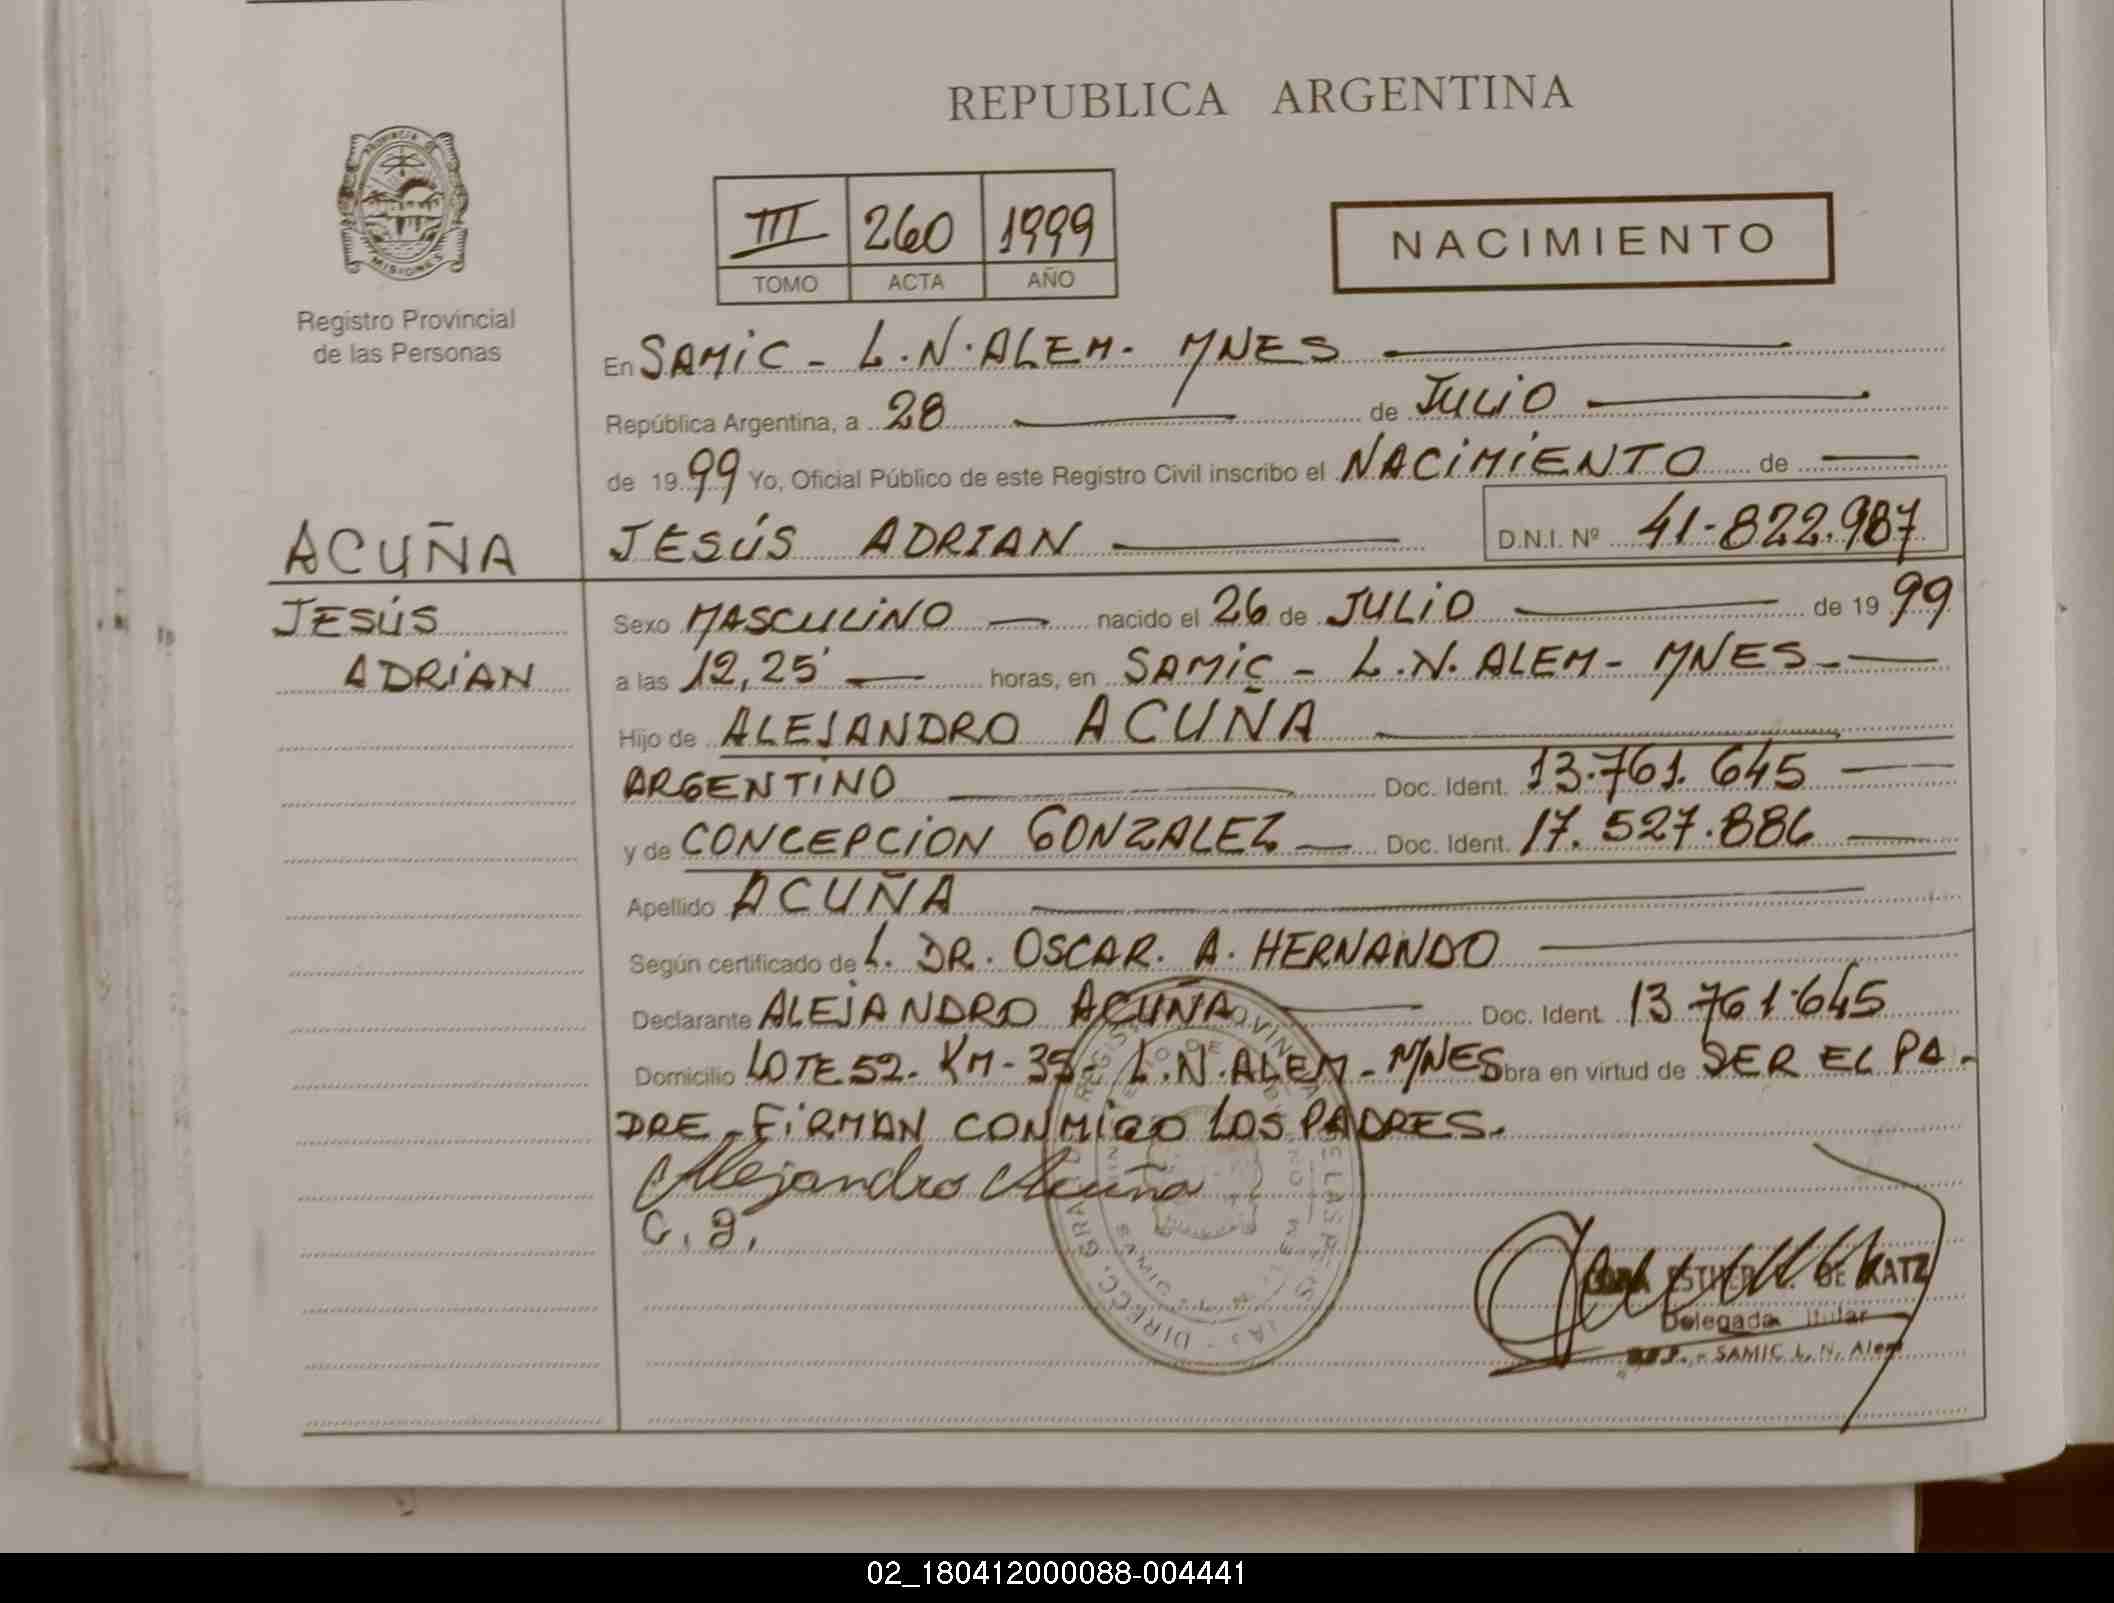 REPUBLICA ARGENTINA
PROVINCIA DE
MISIONES
Registro Provincial
de las Personas
III 260 1999
TOMO ACTA AÑO
NACIMIENTO
En SAMIC - L.N. ALEM - MNES
República Argentina, a 28 de JULIO
de 1999 Yo, Oficial Público de este Registro Civil inscribo el NACIMIENTO de
JESÚS ADRIAN D.N.I. Nº 41.822.987
ACUÑA
JESÚS
ADRIAN
Sexo MASCULINO nacido el 26 de JULIO de 1999
a las 12,25' horas, en SAMIC - L.N. ALEM - MNES -
Hijo de ALEJANDRO ACUÑA
ARGENTINO Doc. Ident. 13.761.645
y de CONCEPCION GONZALEZ Doc. Ident. 17.527.886
Apellido ACUÑA
Según certificado de L. DR. OSCAR. A. HERNANDO
Declarante ALEJANDRO ACUÑA Doc. Ident. 13.761.645
Domicilio LOTE 52 - KM - 35 - L.N. ALEM - MNES obra en virtud de SER EL PA-
DRE - FIRMAN CONMIGO LOS PADRES.
Alejandro Acuña
C. g.
ESTHER DE KATZ
Delegada Titular
SAMIC L. N. Alem
02_180412000088-004441